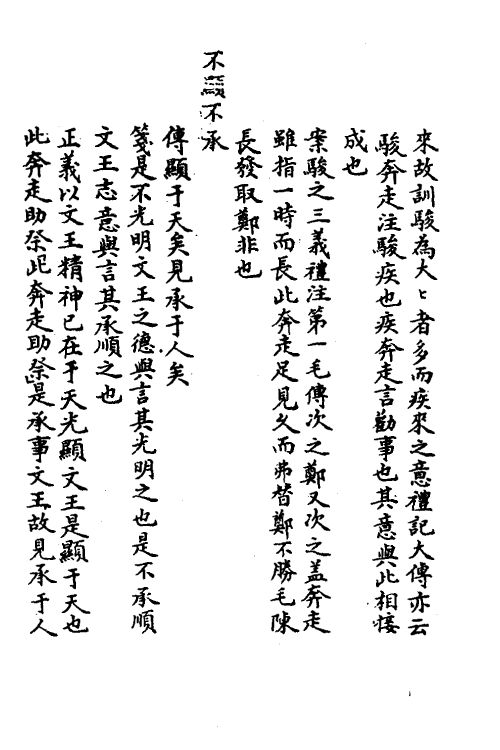 來故訓駿為大〻者多而疾來之意禮記大傳亦云
駿奔走注駿疾也疾奔走言勸事也其意與此相接
成也
案駿之三義禮注第一毛傳次之鄭又次之盖奔走
雖指一時而長此奔走足見久而弗替鄭不勝毛陳
長發取鄭非也
不顯不承
傳顯于天矣見承于人矣
箋是不光明文王之德與言其光明之也是不承順
文王志意與言其承順之也
正義以文王精神已在于天光顯文王是顯于天也
此奔走助祭此奔走助祭是承事文王故見承于人